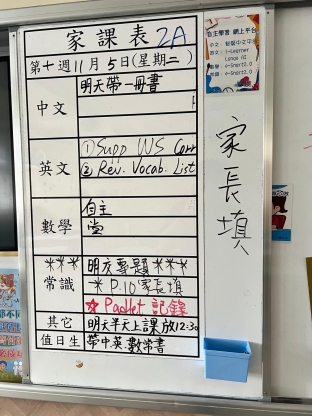 家課表 2A
第十週 11月5日(星期二)
中文
明天帶一冊書
英文
①Supp WS Corr
②Rev. Vocab. List
數學
自主
堂
***
常識
明友專題***
* P.10家長填
☆ Padlet 記錄
其它
明天半天上課放12:30
值日生
帶中英.數常書
家長填
自主學習 網上平台